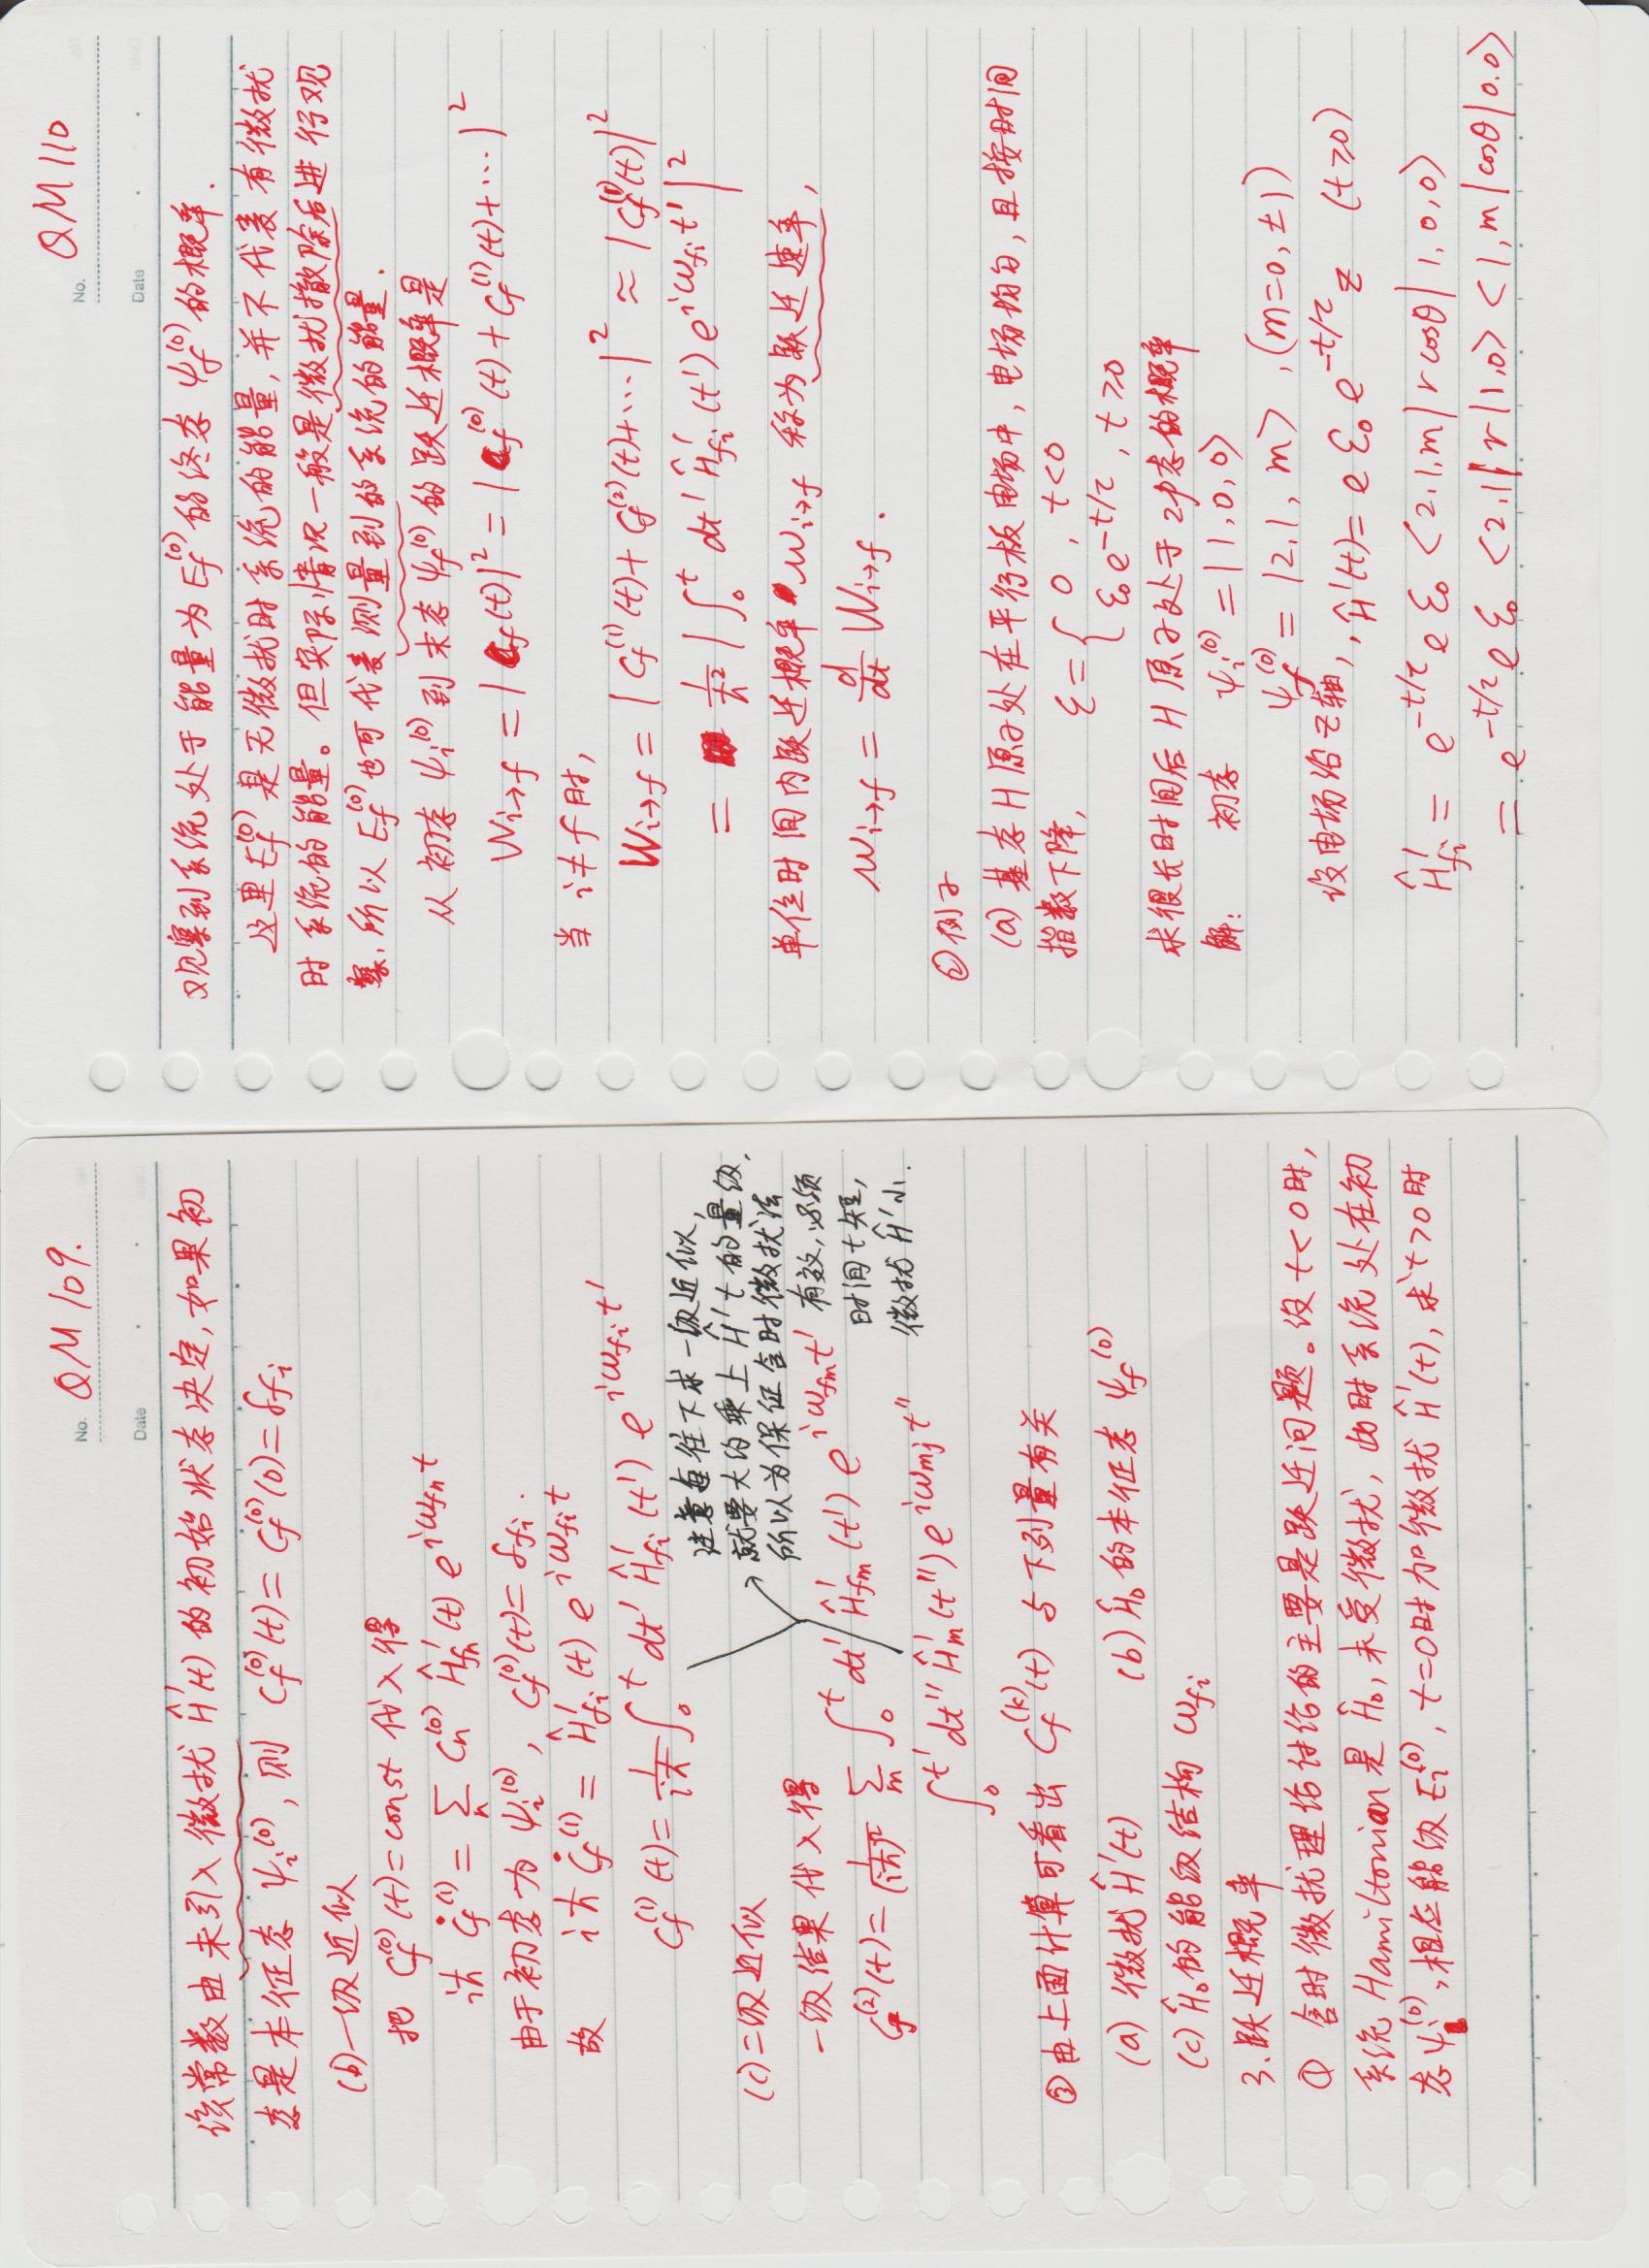 No. QM 109.
Date
该常数由未引入微扰 Ĥ'(t) 的初始状态决定, 如果初
态是本征态 ψᵢ⁽⁰⁾, 则 C_f⁽⁰⁾(t) = C_f⁽⁰⁾(0) = δfi
(b) 一级近似
把 C_f⁽⁰⁾(t) = const 代入得
iħ Ċ_f⁽¹⁾ = Σ_n C_n⁽⁰⁾ Ĥ'_fn(t) e^{iω_fn t}
由于初态为 ψᵢ⁽⁰⁾, C_f⁽⁰⁾(t) = δfi .
故 iħ Ċ_f⁽¹⁾ = Ĥ'_fi(t) e^{iω_fi t}
C_f⁽¹⁾(t) = 1/(iħ) ∫₀^t dt' Ĥ'_fi(t') e^{iω_fi t'}
注意每往下求一级近似,
就要大约乘上 Ĥ't 的量级,
所以为保证含时微扰法
有效, 必须
时间 t 短,
微扰 Ĥ' 小.
(c) 二级近似
一级结果代入得
C_f⁽²⁾(t) = 1/(iħ)² Σ_m ∫₀^t dt' Ĥ'_fm(t') e^{iω_fm t'}
∫₀^t' dt'' Ĥ'_m(t'') e^{iω_mj t''}
③ 由上面计算可看出 C_f⁽ᵏ⁾(t) 与下列量有关
(a) 微扰 Ĥ'(t) (b) Ĥ₀ 的本征态 ψ_f⁽⁰⁾
(c) Ĥ₀ 的能级结构 ω_fi
3. 跃迁概率
① 含时微扰理论讨论的主要是跃迁问题。设 t<0 时,
系统 Hamiltonian 是 Ĥ₀, 未受微扰, 此时系统处在初
态 ψᵢ⁽⁰⁾, 相应能级 Eᵢ⁽⁰⁾, t=0 时加微扰 Ĥ'(t), 求 t>0 时
No. QM 110
Date
观察到系统处于能量为 E_f⁽⁰⁾ 的终态 ψ_f⁽⁰⁾ 的概率.
这里 E_f⁽⁰⁾ 是无微扰时系统的能量, 并不代表有微扰
时系统的能量。但实际情况一般是微扰撤除后进行观
察, 所以 E_f⁽⁰⁾ 也可代表测量到的系统的能量.
从初态 ψᵢ⁽⁰⁾ 到末态 ψ_f⁽⁰⁾ 的跃迁概率是
W_{i→f} = |C_f(t)|² = |C_f⁽⁰⁾(t) + C_f⁽¹⁾(t) + ⋯|²
当 i≠f 时,
W_{i→f} = |C_f⁽¹⁾(t) + C_f⁽²⁾(t) + ⋯|² ≈ |C_f⁽¹⁾(t)|²
= 1/ħ² |∫₀^t dt' Ĥ'_fi(t') e^{iω_fi t'}|²
单位时间内跃迁概率 w_{i→f} 称为跃迁速率,
w_{i→f} = d/dt W_{i→f} .
② 例子
(a) 基态 H 原子处在平行板电场中, 电场均匀, 且按时间
指数下降, ε = { 0 , t<0
ε₀ e^{-t/τ} , t≥0
求很长时间后 H 原子处于 2p 态的概率
解: 初态 ψᵢ⁽⁰⁾ = |1,0,0>
ψ_f⁽⁰⁾ = |2,1,m> , (m=0,±1)
设电场沿 z 轴, , Ĥ'(t) = e ε₀ e^{-t/τ} z (t≥0)
Ĥ'_fi = e^{-t/τ} e ε₀ <2,1,m| r cosθ |1,0,0>
= e^{-t/τ} e ε₀ <2,1| r |1,0> <1,m| cosθ |0.0>